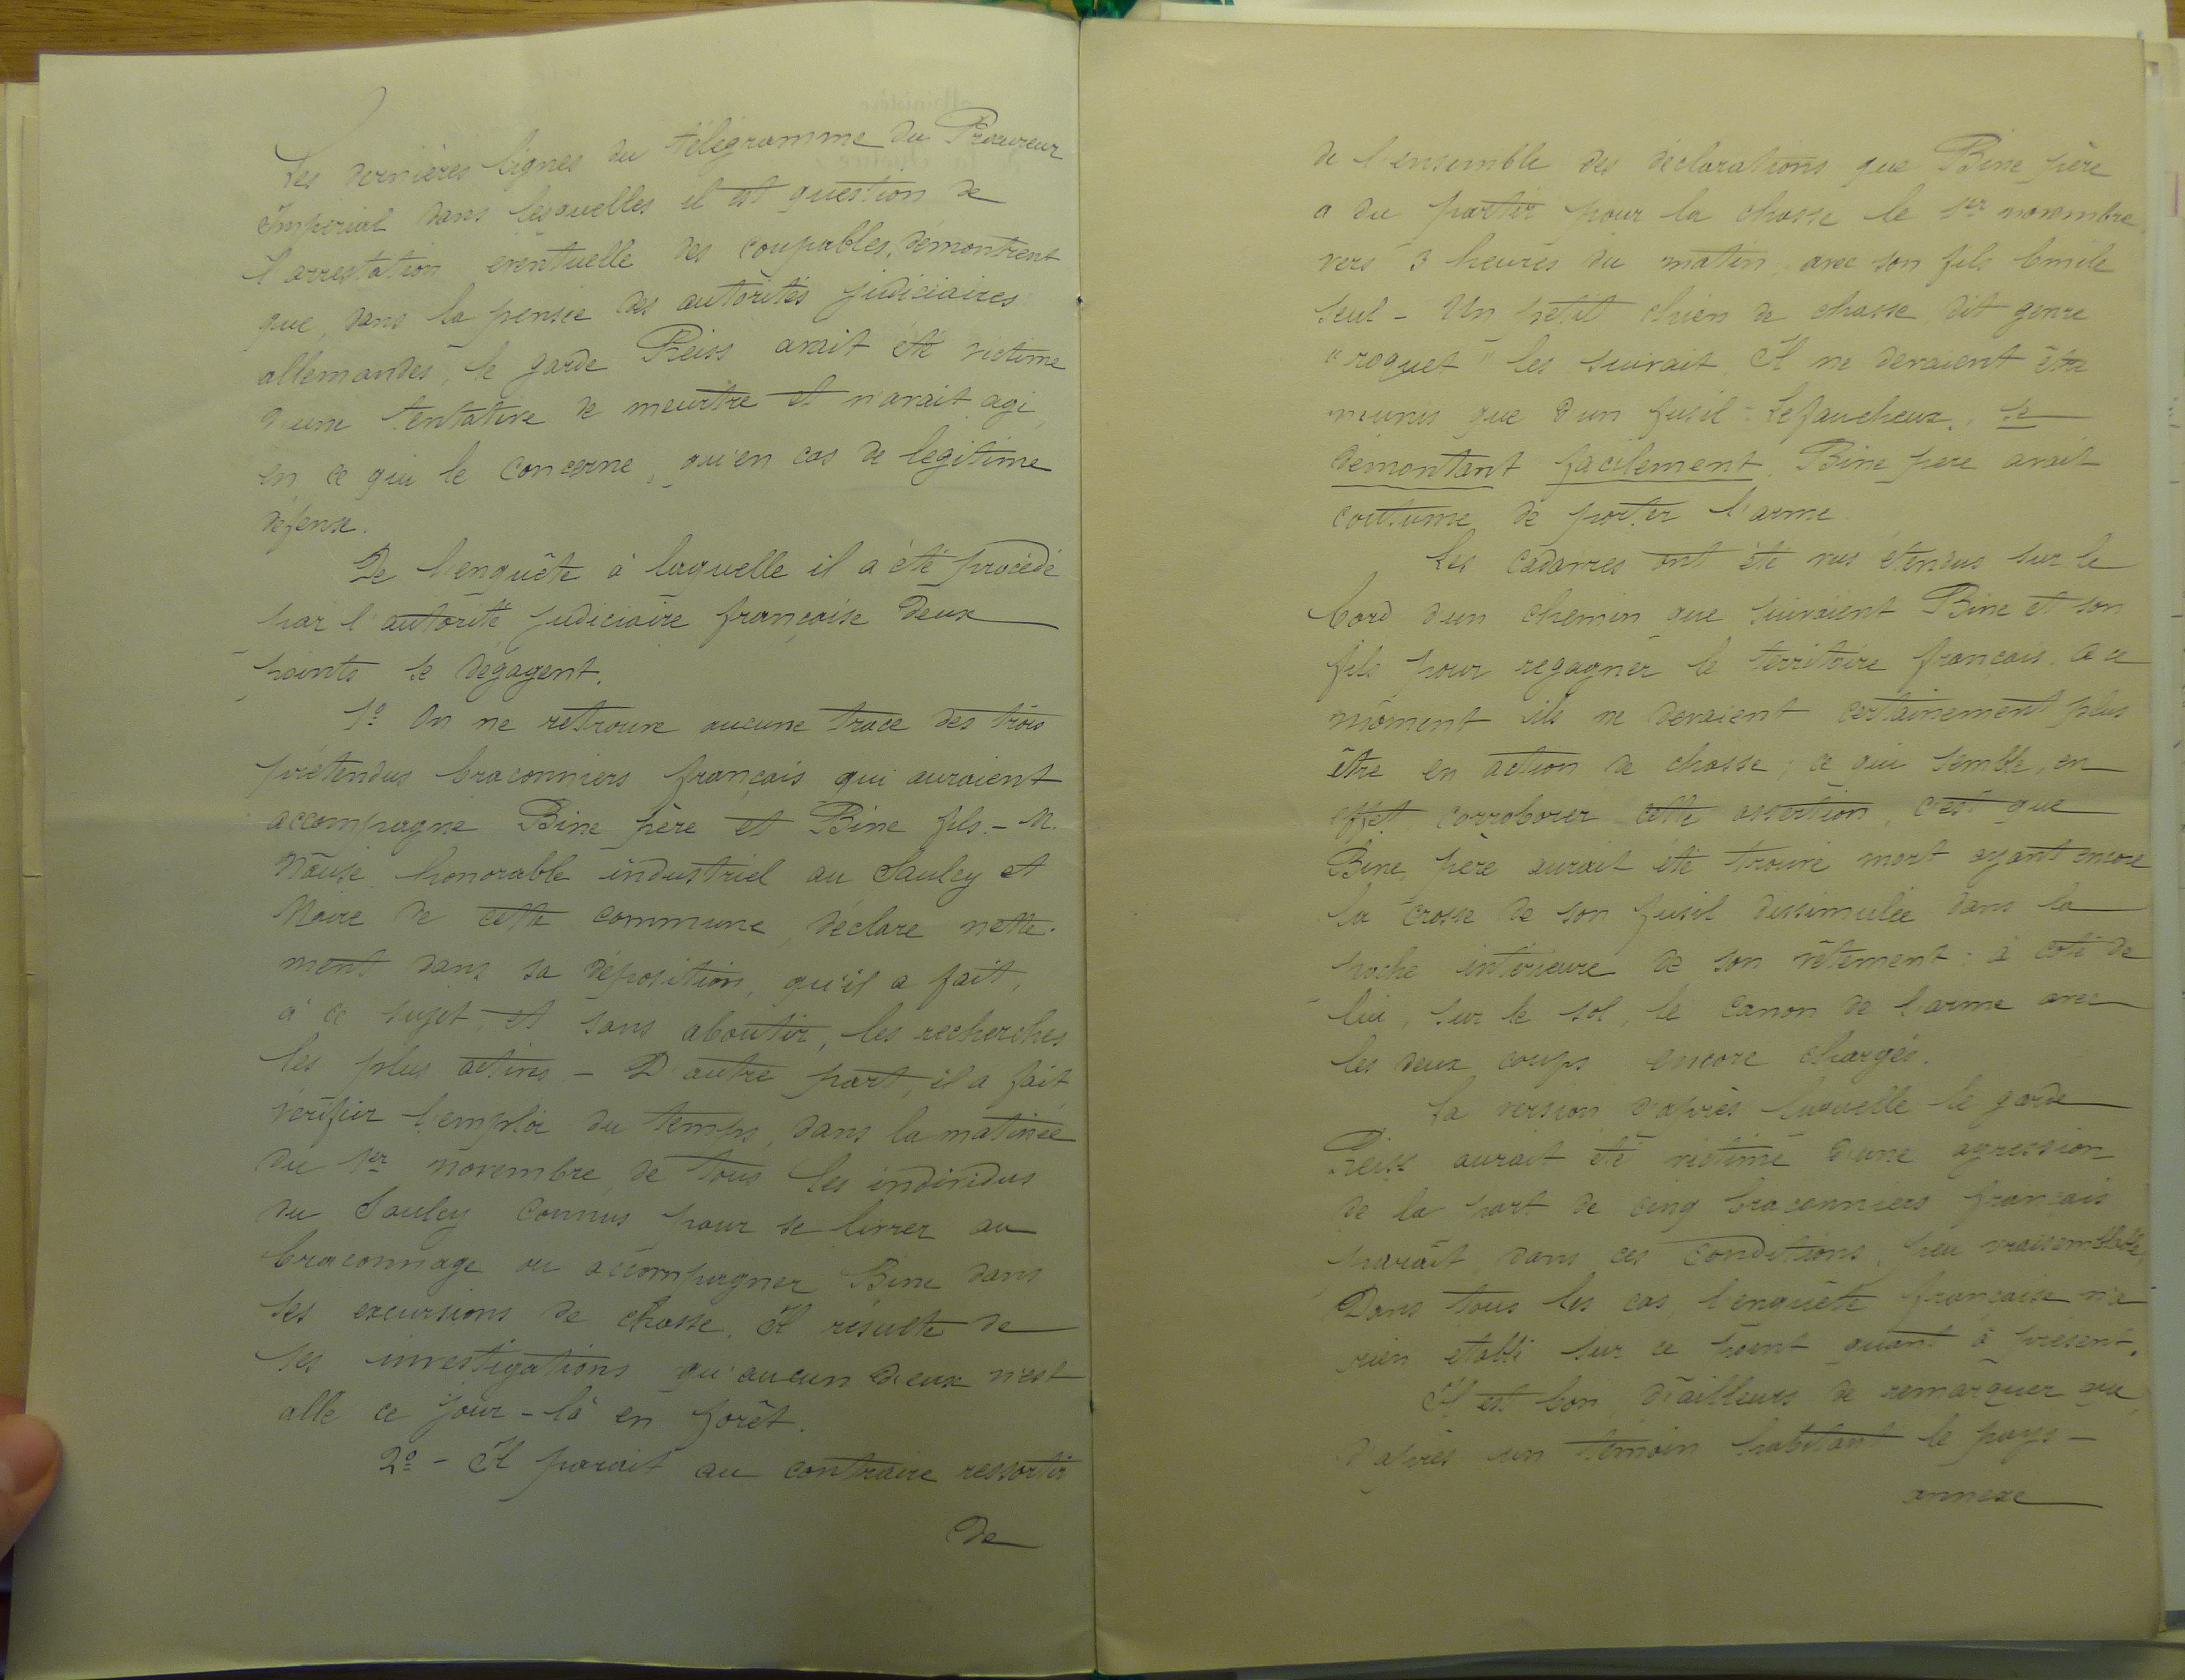 Les dernières lignes du télégramme du Procureur
Impérial dans lesquelles il est question de
l'arrestation éventuelle des coupables, démontrent
que, dans la pensée des autorités judiciaires
allemandes, le garde Reiss avait été victime
d'une tentative de meurtre et n'avait agi,
en ce qui le concerne, qu'en cas de légitime
défense.
De l'enquête à laquelle il a été procédé
par l'autorité judiciaire française deux
points se dégagent.
1º On ne retrouve aucune trace des trois
prétendus braconniers français qui auraient
accompagné Bine père et Bine fils. - M.
honorable industriel au Saulcy et
Maire de cette commune, déclare nette-
ment dans sa déposition, qu'il a fait,
à ce sujet, et sans aboutir, les recherches
les plus actives. - D'autre part, il a fait
vérifier l'emploi du temps, dans la matinée
du 1er novembre, de tous les individus
du Saulcy connus pour se livrer au
braconnage ou accompagner Bine dans
ses excursions de chasse. Il résulte de
ses investigations qu'aucun d'eux n'est
allé ce jour-là en forêt.
2º - Il parait au contraire ressortir
de
de l'ensemble des déclarations que Bine père
a du partir pour la chasse le 1er novembre,
vers 3 heures du matin, avec son fils Emile
seul - Un petit chien de chasse, dit genre
"roquet" les suivait. Il ne devaient être
munis que d'un fusil - Lefaucheux, se
démontant facilement. Bine père avait
coutume de porter l'arme.
Les cadavres ont été vus étendus sur le
bord d'un chemin que suivaient Bine et son
fils pour regagner le territoire français. A ce
moment ils ne devaient certainement plus
être en action de chasse, ce qui semble, en
effet, corroborer cette assertion, c'est que
Bine père aurait été trouvé mort ayant encore
la crosse de son fusil dissimulée dans la
poche intérieure de son vêtement : à coté de
lui, sur le sol, le canon de l'arme avec
les deux coups encore chargés.
La version d'après laquelle le garde
Reiss aurait été victime d'une agression
de la part de cinq braconniers français
parait, dans ces conditions, peu vraisemblable.
Dans tous les cas, l'enquête française n'a
rien établi sur ce point quant à présent.
Il est bon d'ailleurs de remarquer que,
d'après un témoin habitant le pays -
annexé